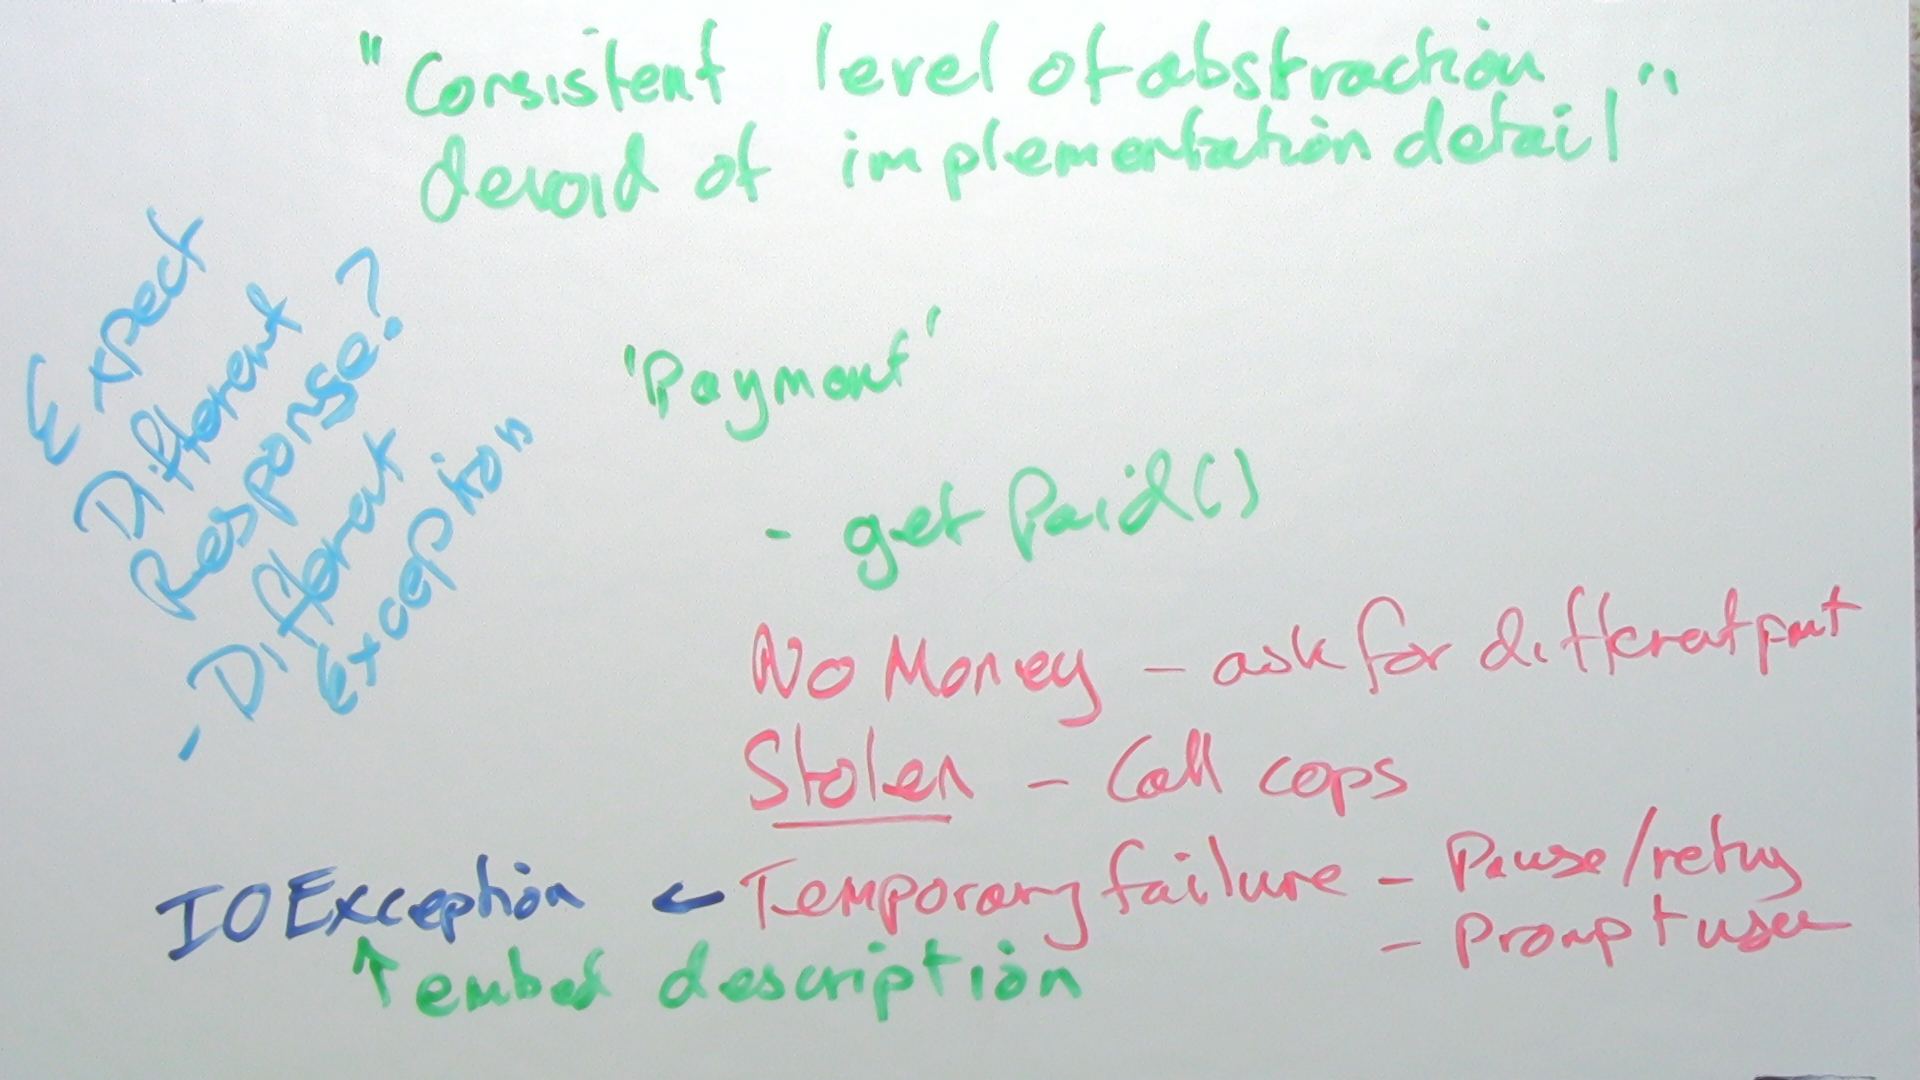 "Consistent level of abstraction
devoid of implementation detail"
Expect
Different
Response?
- Different
Exception
'Payment'
- getPaid()
No Money - ask for different pmt
Stolen - Call cops
IOException ← Temporary failure - Pause/retry
- Prompt user
↑ embed description